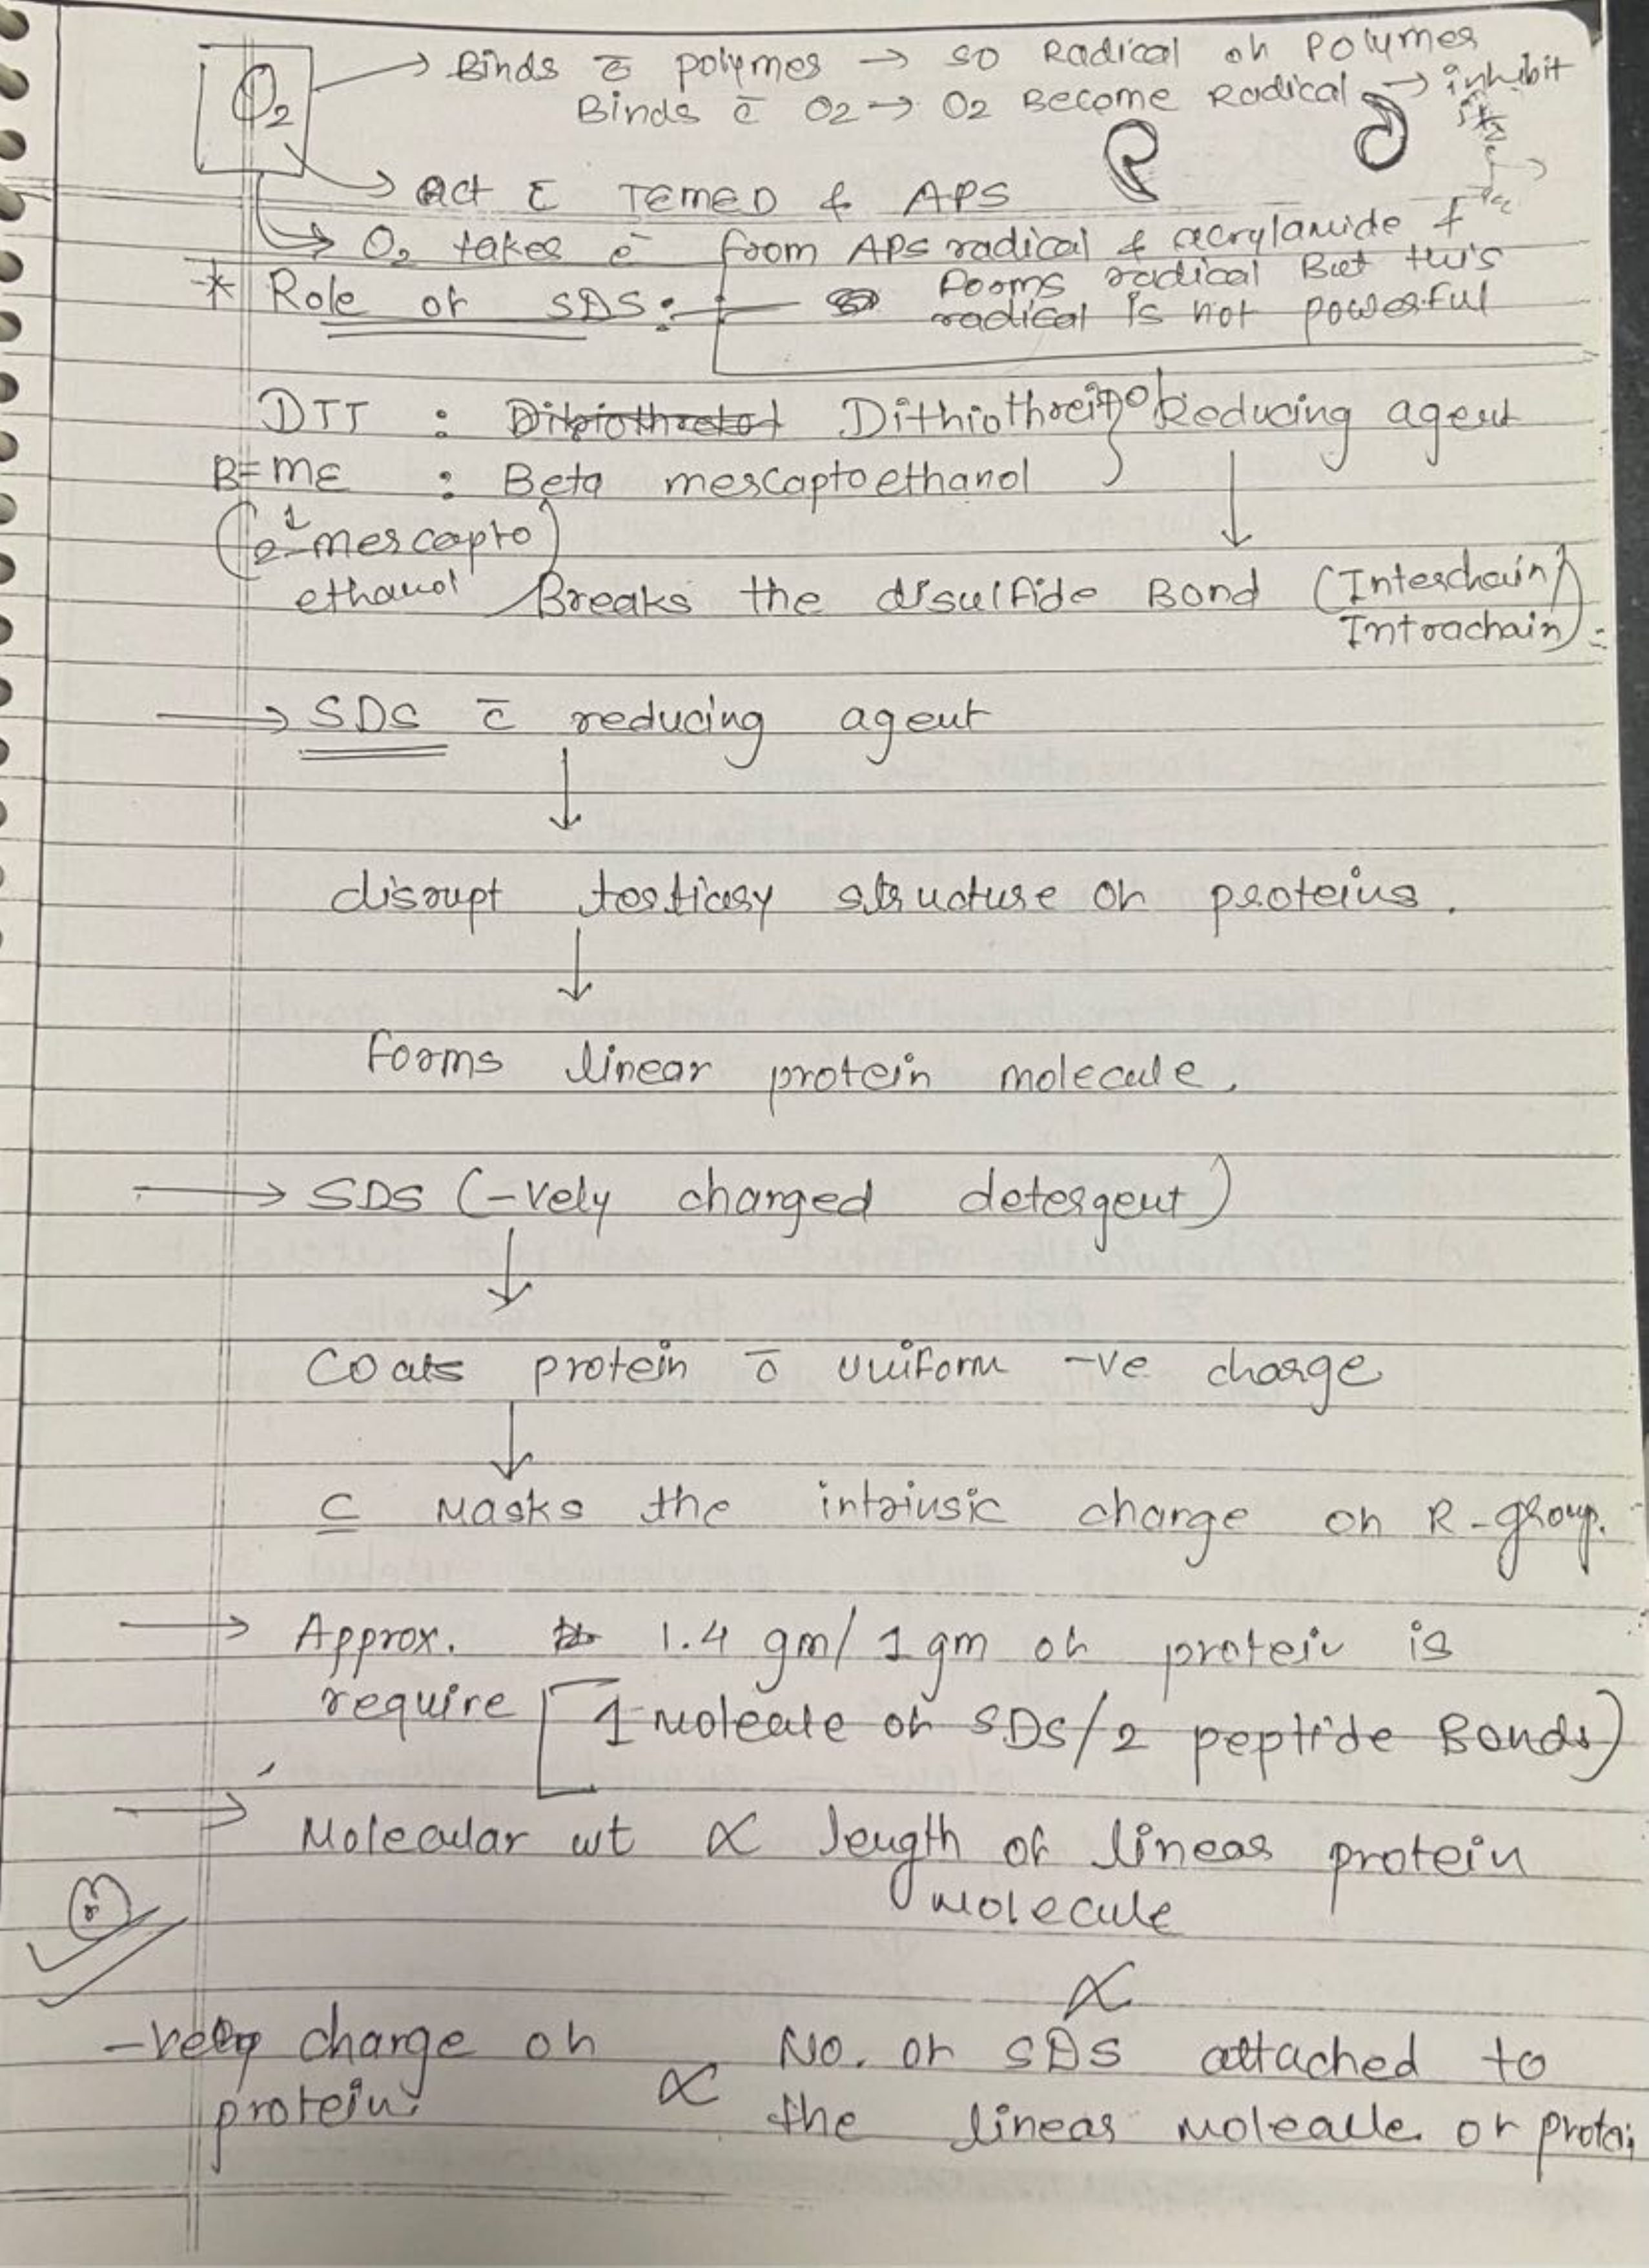 O2 → Binds c̄ polymer → so Radical oh Polymer
Binds c̄ O2 → O2 Become Radical → inhibit
→ act c̄ TEMED & APS
→ O2 takes e⁻ from APS radical & acrylamide &
forms radical But this
* Role of SDS:
radical is not powerful
DTT : Dithiothreitol Reducing agent
B-ME : Beta mercaptoethanol
(2-mercapto
ethanol) Breaks the disulfide Bond (Interchain
Intrachain)
→ SDS c̄ reducing agent
↓
disrupt tertiary structure oh proteins.
↓
Forms linear protein molecule.
→ SDS (-vely charged detergent)
↓
Coats protein c̄ uniform -ve charge
↓
C masks the intrinsic charge oh R-group.
→ Approx. 1.4 gm/1gm oh protein is
require [1 molecule oh SDS/2 peptide Bonds)
→
Molecular wt ∝ length of linear protein
molecule
∝
-vely charge oh ∝ No. oh SDS attached to
protein. the linear molecule or protei